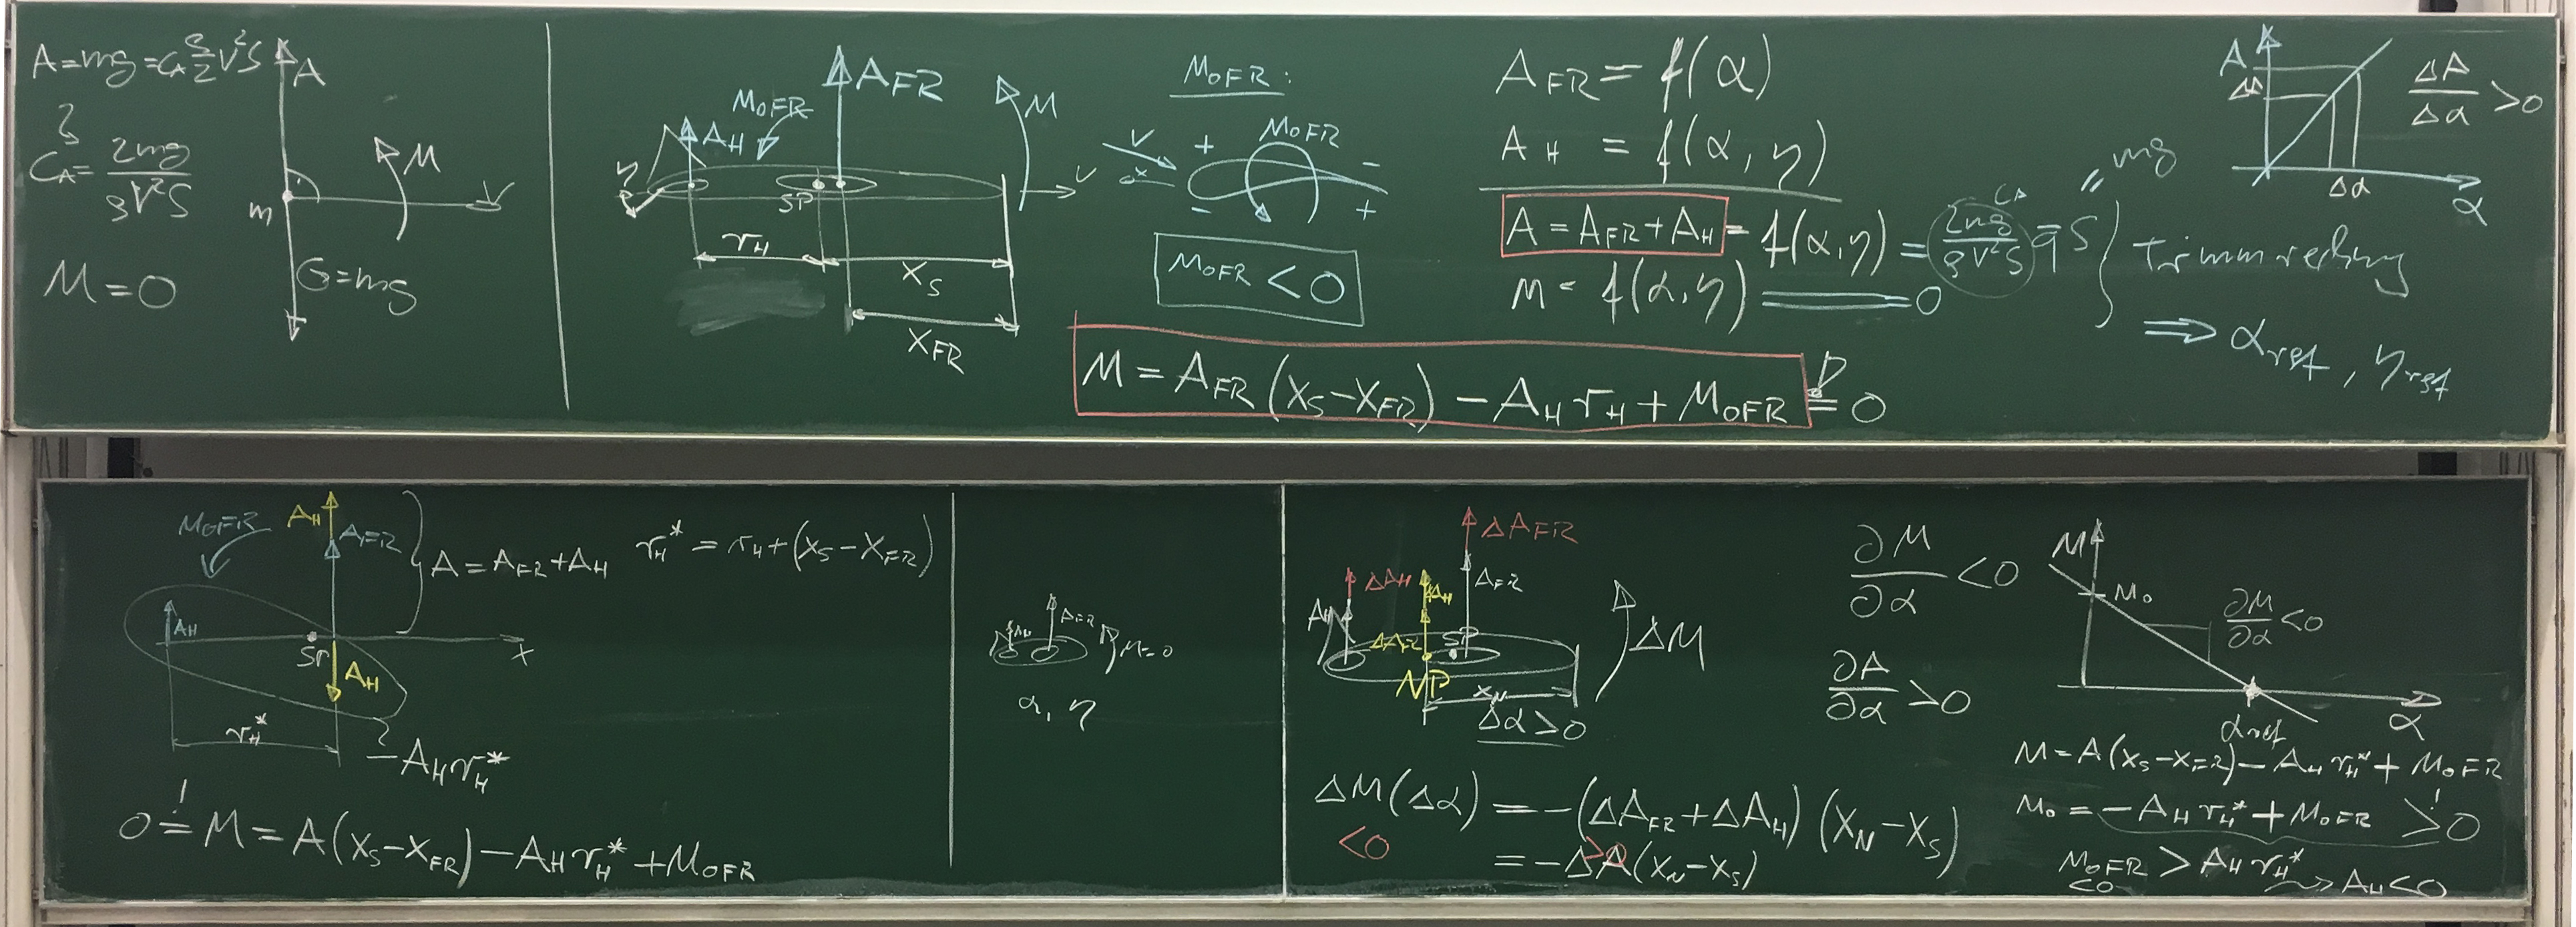 A = mg = C_A ρ/2 V² S
C_A = 2mg / ρV²S
M = 0
A
M
V
m
G = mg
A_FR
M_0FR
A_H
M
η
SP
V
r_H
X_S
X_FR
M_0FR:
V
α
+
M_0FR
-
-
+
M_0FR < 0
A_FR = f(α)
A_H = f(α, η)
A = A_FR + A_H = f(α, η) = 2mg / ρV²S q̄ S
C_A
" mg
M = f(α, η) = 0
Trimmrechnung
⇒ α_ref, η_ref
M = A_FR (X_S - X_FR) - A_H r_H + M_0FR != 0
A
ΔA
Δα
α
ΔA/Δα > 0
M_0FR
A_H
A_FR
A = A_FR + A_H
r_H* = r_H + (X_S - X_FR)
A_H
SP
x
A_H
r_H*
-A_H r_H*
0 != M = A(X_S - X_FR) - A_H r_H* + M_0FR
A_H
A_FR
M = 0
α, η
ΔA_FR
ΔA_H
A_H
A_FR
A_H
ΔA_FR
SP
NP
X_N
ΔM
Δα > 0
ΔM(Δα) = -(ΔA_FR + ΔA_H) (X_N - X_S)
< 0
>0
= -ΔA(X_N - X_S)
∂M/∂α < 0
∂A/∂α > 0
M
M_0
∂M/∂α < 0
α_ref
α
M = A(X_S - X_FR) - A_H r_H* + M_0FR
M_0 = -A_H r_H* + M_0FR !> 0
M_0FR > A_H r_H*
<0
⇝ A_H < 0